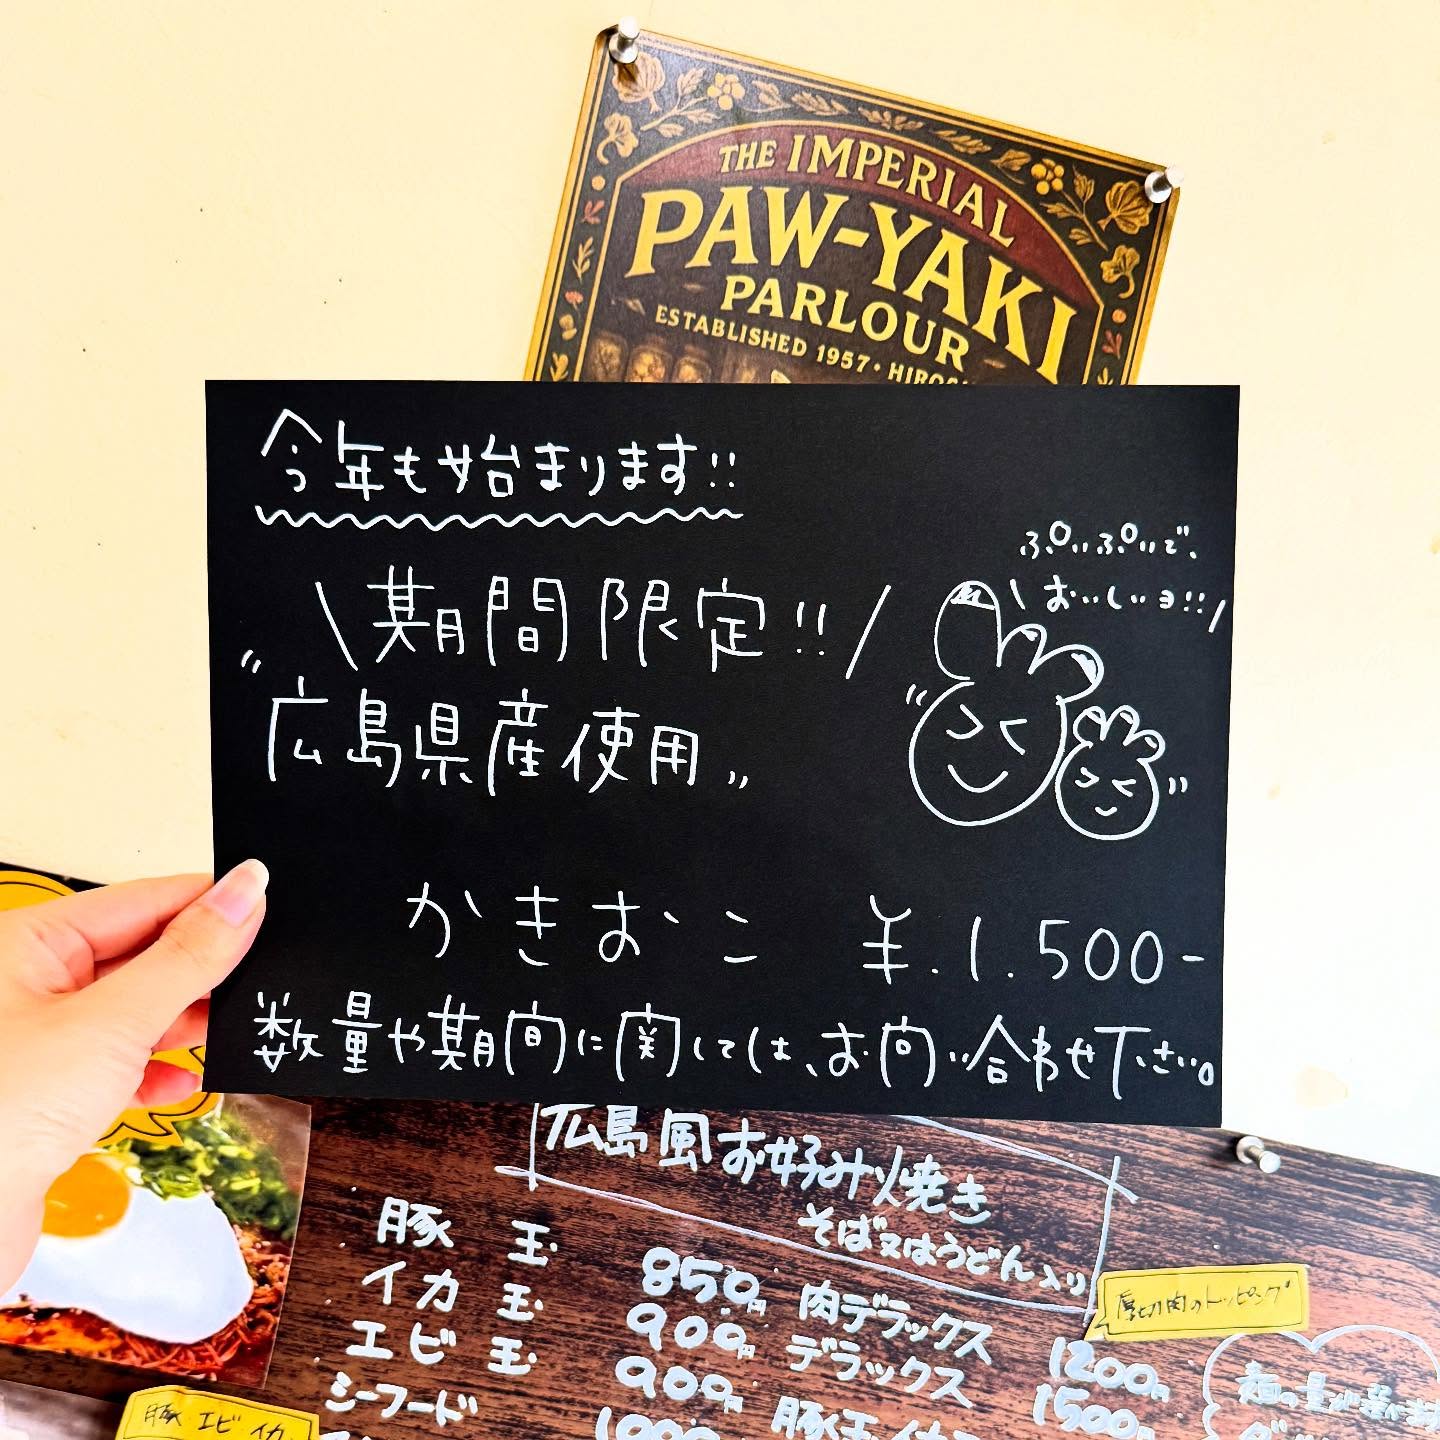 THE IMPERIAL
PAW-YAKI
PARLOUR
ESTABLISHED 1957・HIROS
今年も始まります!!
\期間限定!!/
"広島県産使用"
ぷりぷりで、
\おいしいョ!!/
かきおこ ¥.1.500-
数量や期間に関しては、お問い合わせ下さい。
広島風お好み焼き
そば又はうどん入り
豚 玉 850円 肉デラックス 1200円
イカ 玉 900円 デラックス 1500円
エビ 玉 900円 豚玉
シーフード 1000
厚切肉のトッピング
豚 エビ イカ